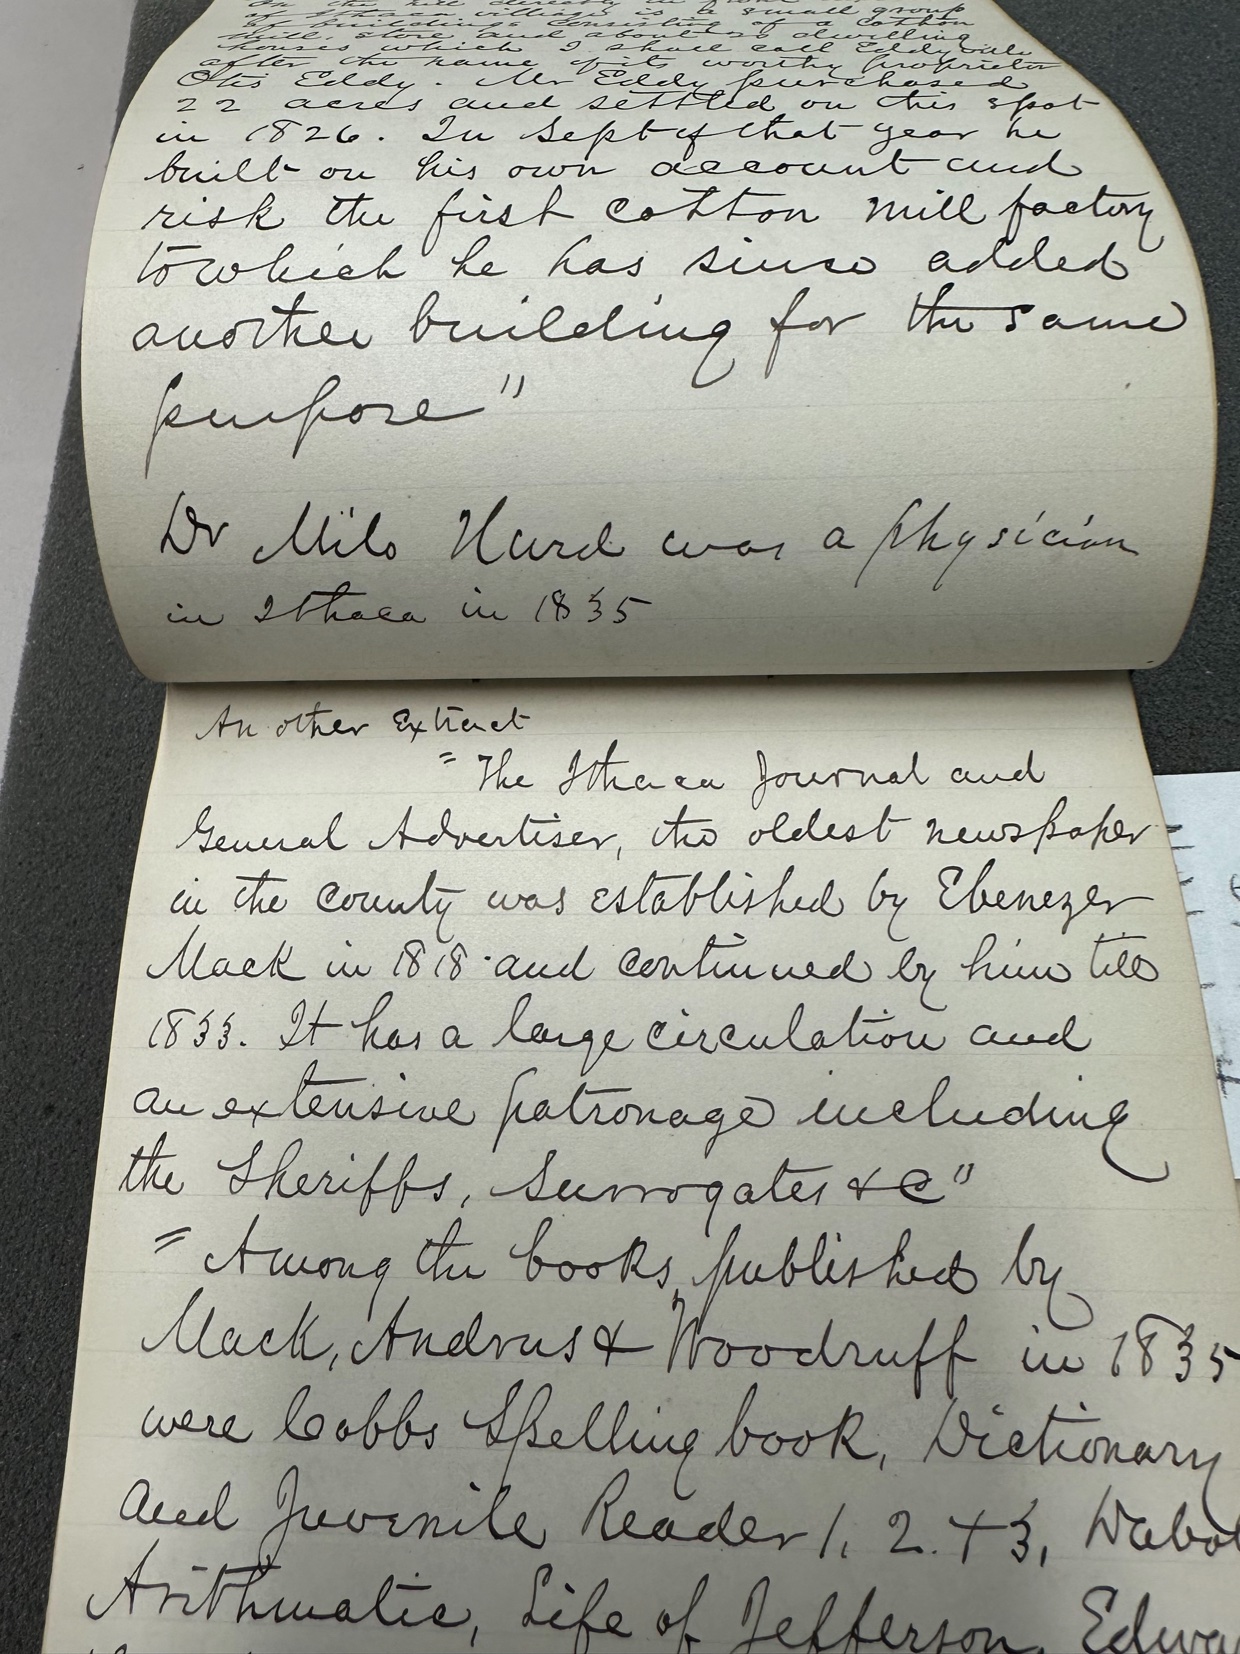 On the hill directly in
of Ithaca village is a small group
of buildings consisting of a cotton
mill, store and about 20 dwelling
houses which I shall call Eddyville
after the name of its worthy proprietor
Otis Eddy. Mr Eddy purchased
22 acres and settled on this spot
in 1826. In Sept of that year he
built on his own account and
risk the first cotton mill factory
to which he has since added
another building for the same
purpose"
Dr Milo Hurd was a physician
in Ithaca in 1835
Another Extract
"The Ithaca Journal and
General Advertiser, the oldest newspaper
in the county was established by Ebenezer
Mack in 1818 and continued by him till
1833. It has a large circulation and
an extensive patronage including
the Sheriffs, Surrogates &c"
"Among the books published by
Mack, Andrus & Woodruff in 1835
were Cobbs Spelling book, Dictionary
and Juvenile Reader 1, 2. + 3, Dabol
Arithmatic, Life of Jefferson, Edwa